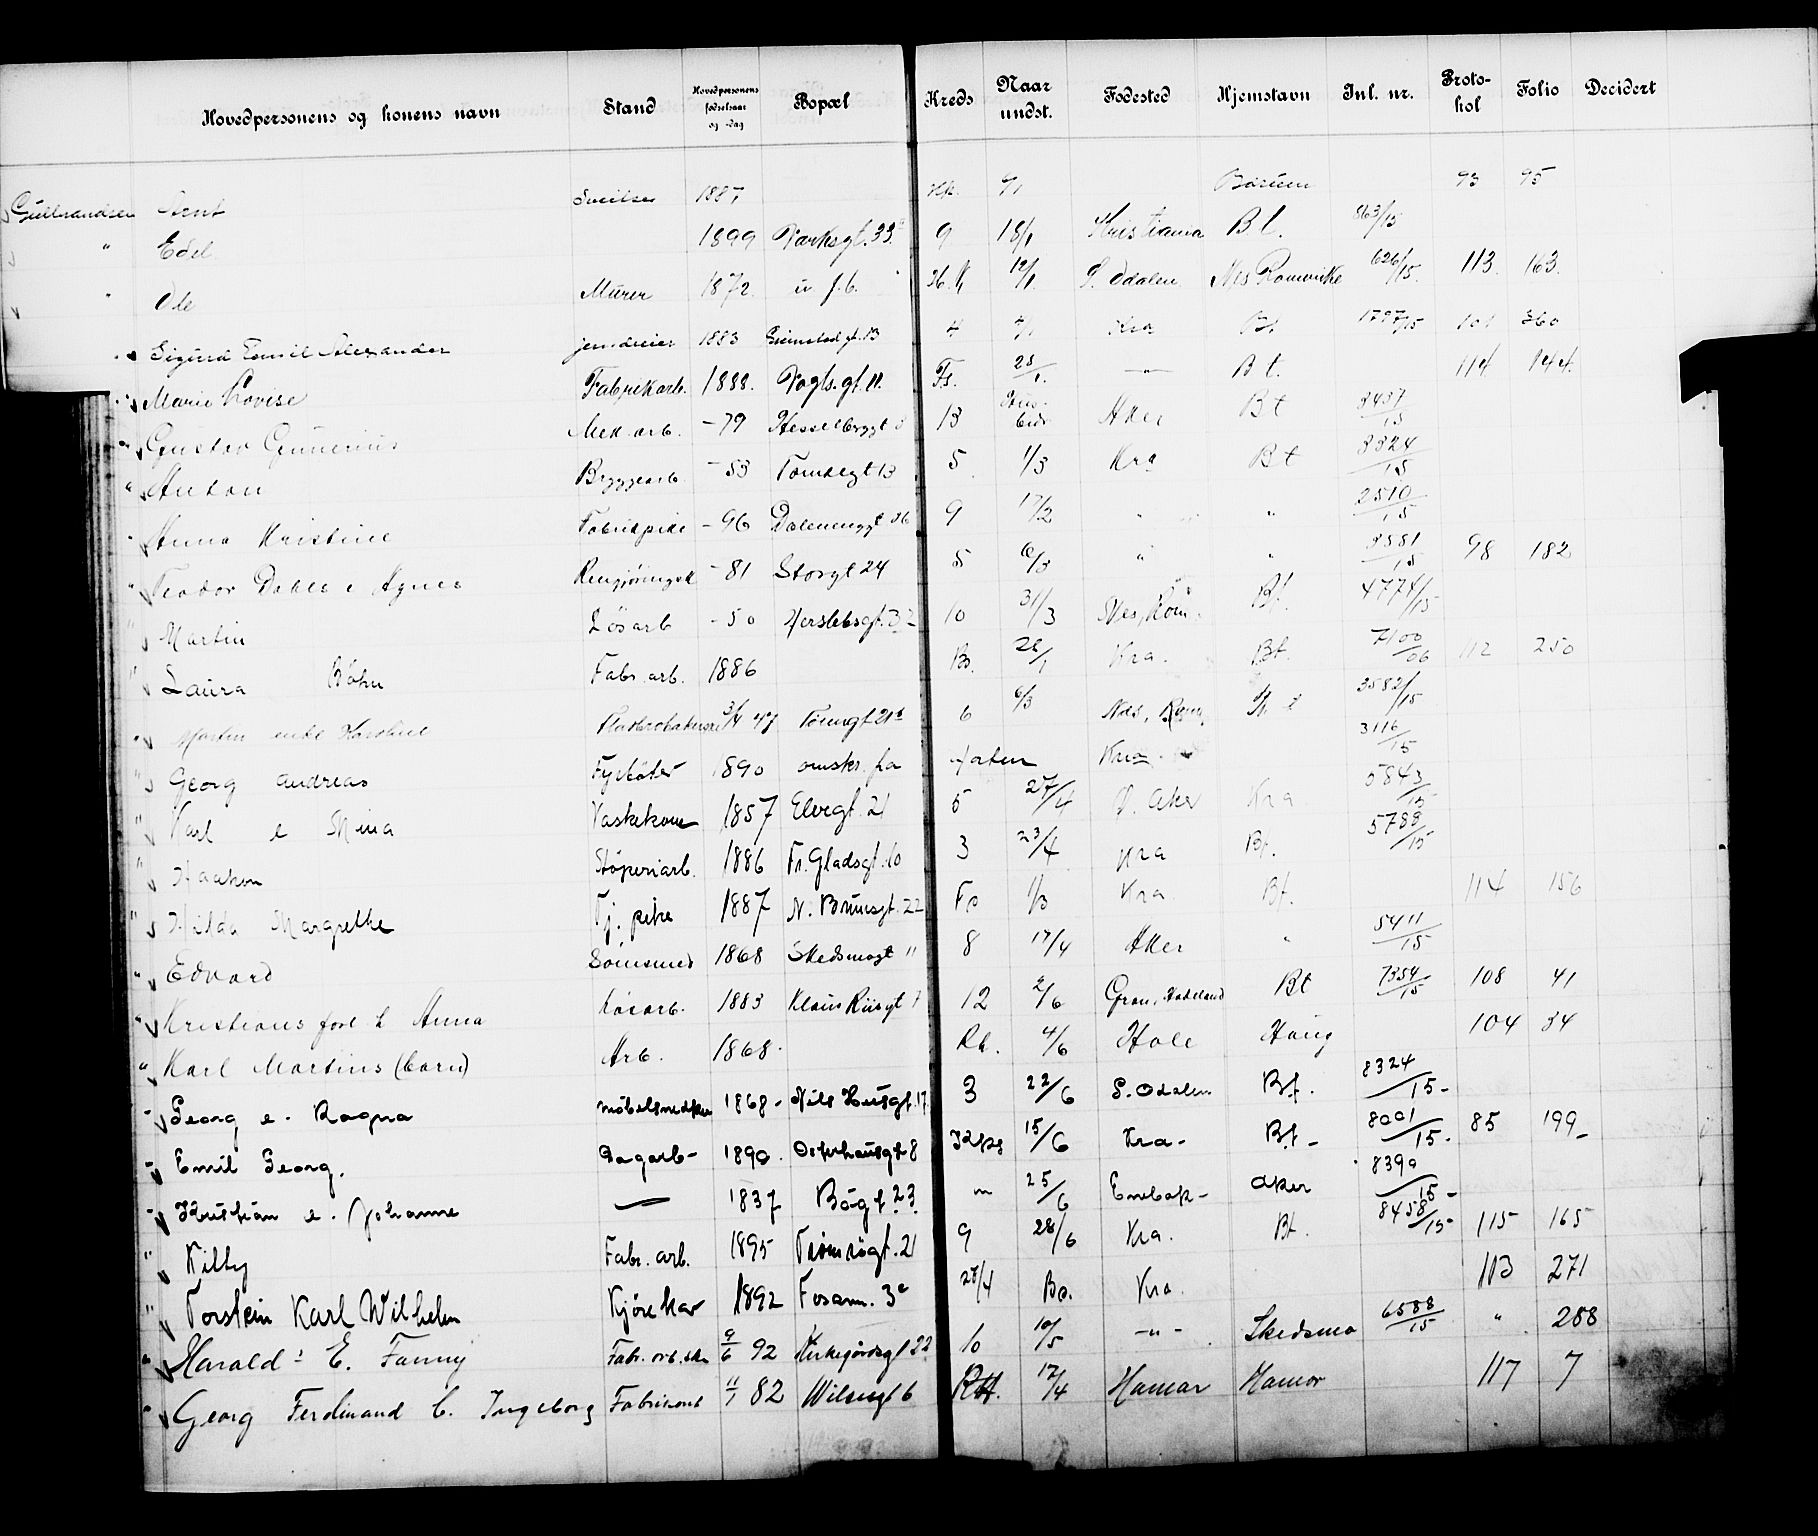 Hovedpersonens og konens navn Stand Hovedpersonens fødselsaar og -dag Bopæl Kreds Naar undst. Fødested Hjemstavn Inl. nr. Protokol Folio Decidert
Gulbrandsen Arnt Sveiser 1887 9/1 Bærum 93 95
" Edel 1899 Parksgt. 33 9 18/1 Kristiania B.t. 863/15
" Ole Murer 1872 u. f. b. 12/1 S. Odalen Nes Romerike 626/15 113 163
Sigurd Emil Alexander 1883 Grimstad gt. 13 4 4/1 Kra Bt 1797/15 101 360
Marie Lovise Fabrikarb. 1888. Vogts. gt. 11. Fs. 25/1. —"— B t. 114 144.
" Gustav Gunerius Mek. arb. -79 Hesselbergsgt 8 13 Aker Bt 3437/15
" Anton Bryggearb. -53 Tomtegt 13 5 1/3 Kra Bt 3324/15
" Anna Kristine Fabrikpike -96 Dalenenggt 36 9 17/2 " " 2510/15
" Teodor Dables e Agnes Rengjøringsk -81 Storgt 24 5 6/3 " " 3581/15 98 182
" Martin Løsarb -50 Herslebsgt. 32 10 31/3 Nes, Rom. Bt. 4774/15
" Laura Bøhn Fabr. arb. 1886 Bs. 26/1 Kra. Bt. 7100/06 112 250
" Martin enke Karoline 3/4 47 Tomtgt 21b 6 6/3 Næs, Rom. 3582/15
" Georg Andreas Fyrbøter 1890 omskr. fra Horten Kra. 3116/15
" Karl e Mina Vaskekone 1857 Elvegt. 21 5 27/4 V. Aker Kra 5843/15
" Haakon Støperiarb. 1886 Fr. Gladsgt. 10 3 23/4 Kra Bt. 5788/15
" Hilda Margrethe Tj. pike 1887 N. Brunsgt. 22 Fs 1/3 Kra Bt. 114 156
" Edvard Sømsmed 1868 Skedsmogt 11 8 17/4 Aker " 5411/15
" Kristians forl h Anna Løsarb. 1883 Klaus Riisgt 7 12 2/6 Gran, Hadeland Bt 7354/15 108 41
" Karl Martins (barn) Arb. 1868. Rh. 4/6 Hole Haug 104 34
" Georg e. Ragna 1868- Nils Huusgt. 17 3 22/6 S. Odalen Bt. 8324/15-
" Emil Georg. Dagarb- 1890. Osterhausgt 8 15/6 Kra- Bt- 8001/15- 85 199-
" Kristian e. Johanne — 1837 Bøgt 23 " 25/6 Enebak- Aker 8390/15-
" Kitty Fabr. arb. 1895 Tromsøgt. 21 9 28/6 Kra. Bt. 8458/15- 115 165
" Torstein Karl Wilhelm Kjørekar 1892 Fossum. 3c 28/4 Bs. Kra. 113 271
" Harald : E. Fanny Fabr. arb. ske 9/6 92 Kirkegårdsgt 22 10 10/5 —"— Skedsmo 6588/15 " 288
" Georg Ferdinand E. Ingeborg Fabrikarb 11/1 82 Wilsesgt 6 RH. 12/4 Hamar Hamar 117 7